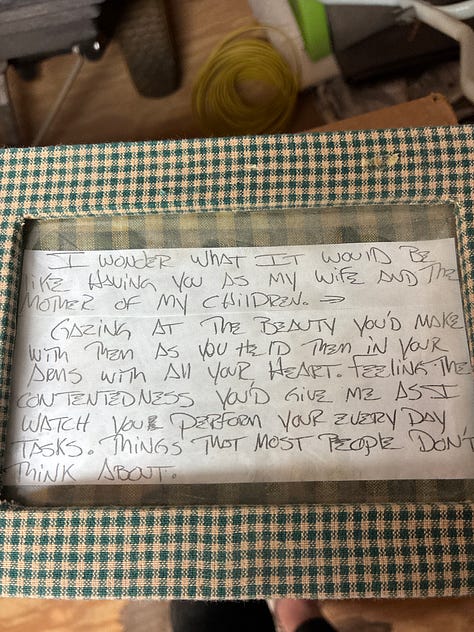 I WONDER WHAT IT WOULD BE
LIKE HAVING YOU AS MY WIFE AND THE
MOTHER OF MY CHILDREN. →
GAZING AT THE BEAUTY YOU'D MAKE
WITH THEM AS YOU HELD THEM IN YOUR
ARMS WITH ALL YOUR HEART. FEELING THE
CONTENTEDNESS YOU'D GIVE ME AS I
WATCH YOU PERFORM YOUR EVERY DAY
TASKS. THINGS THAT MOST PEOPLE DON'T
THINK ABOUT.